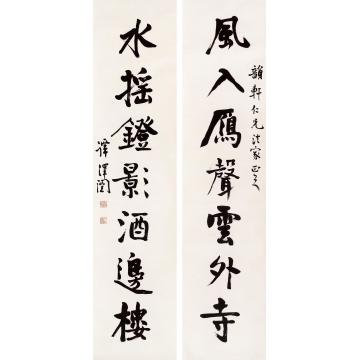 風入雁聲雲外寺
韻軒仁兄法家正之
水搖鐙影酒邊樓
譚澤闓